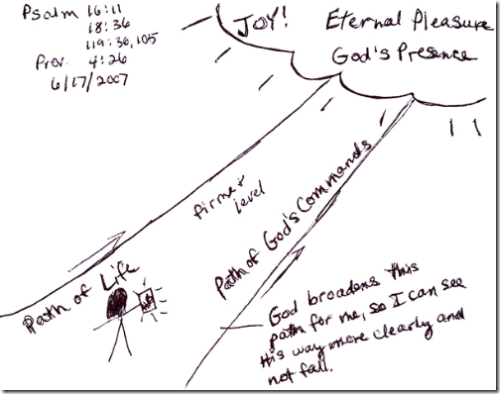 Psalm 16:11
18:36
119:36,105
Prov. 4:26
6/17/2007
JOY!
Eternal Pleasure
God's Presence
firm &
level
Path of Life
Path of God's Commands
God broadens this
path for me, so I can see
His way more clearly and
not fall.